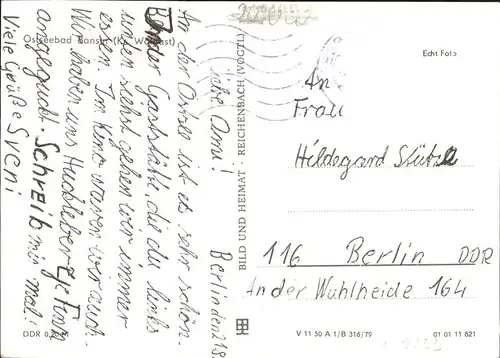 Ostseebad Bansin (Kr. Wolgast)
Berlin den 21.8.
Liebe Oma!
An der Ostsee ist es sehr schön.
In der Gaststätte die du links
unten siehst gehen wir immer
essen. Im Kino waren wir auch.
Wir haben uns Huckleberry Finn
angeguckt. Schreib mir mal!
Viele Grüße Sveni
DDR 0,20 M
BILD UND HEIMAT REICHENBACH (VOGTL)
Echt Foto
An
Frau
Hildegard Stütze
116 Berlin DDR
An der Wuhlheide 164
V 11 50 A 1/B 316/79 01 01 11 821